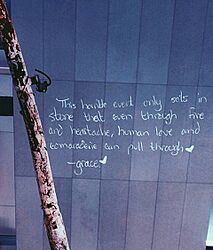 This horrible event only sets in
stone that even through fire
and heartache, human love and
comaraderie can pull through ♥
-grace ♥